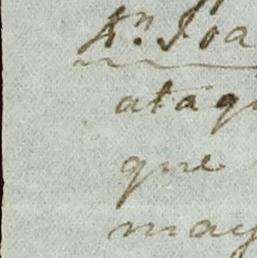 An. Joa
ataq
que
may